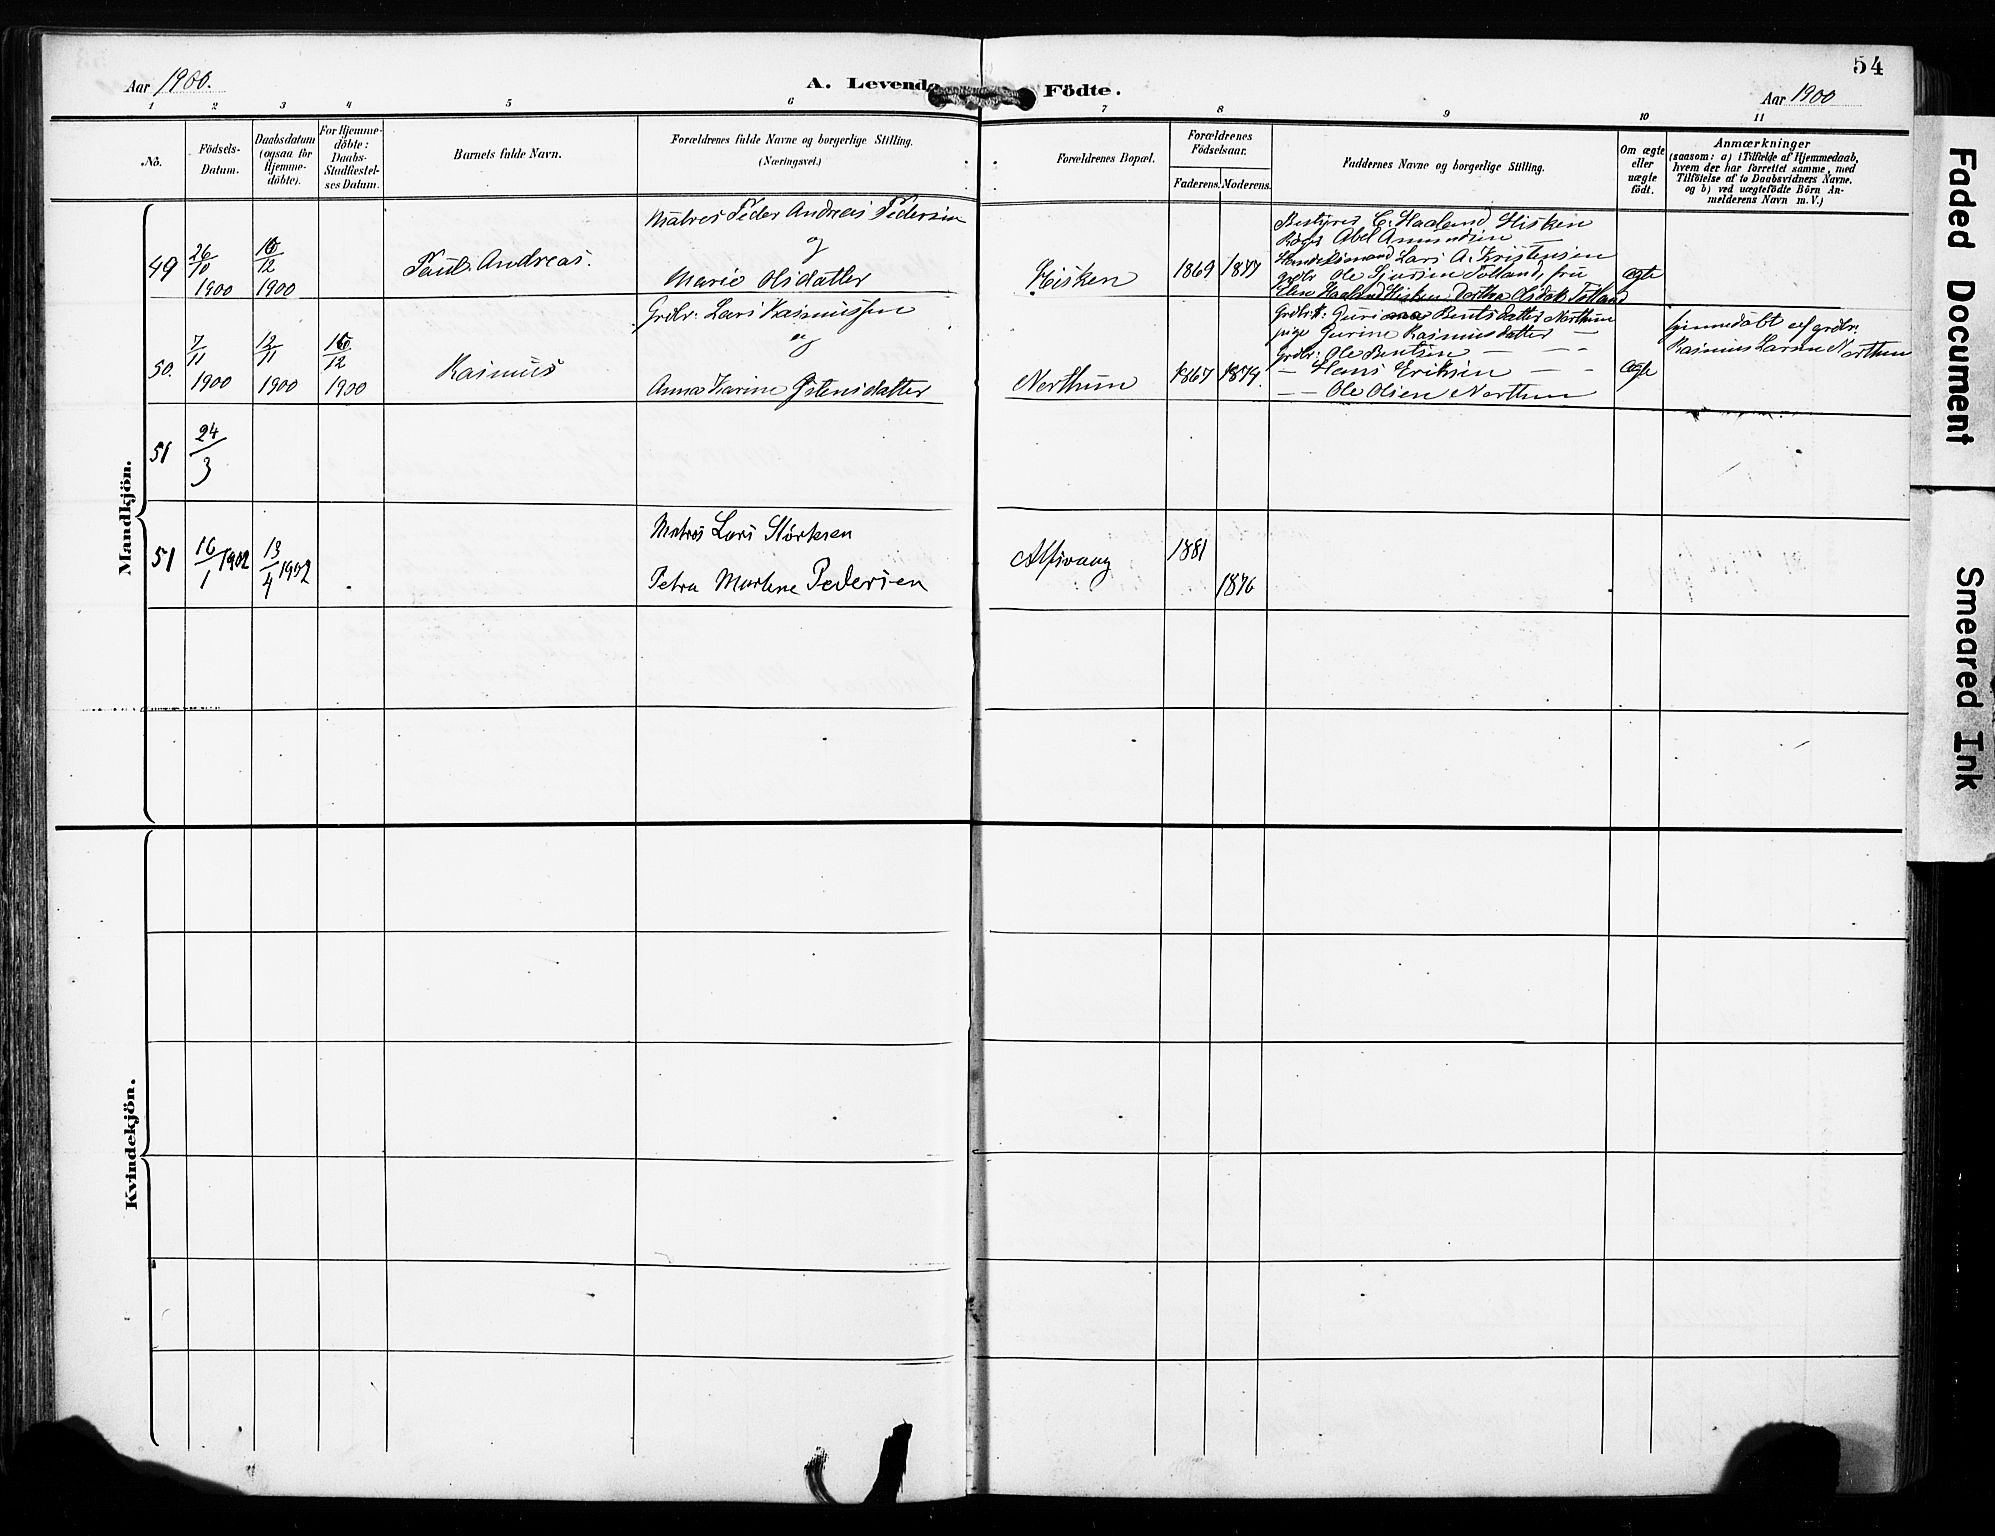 54
Aar 1900.
A. Levende Födte.
Aar 1900
1 2 3 4 5 6 7 8 9 10 11
No.
Födsels-Datum.
Daabsdatum (ogsaa for Hjemme-döbte).
For Hjemme-döbte: Daabs-Stadfæstel-ses Datum.
Barnets fulde Navn.
Forældrenes fulde Navne og borgerlige Stilling. (Næringsvei.)
Forældrenes Bopæl.
Forældrenes Födselsaar.
Faderens. Moderens.
Faddernes Navne og borgerlige Stilling.
Om ægte eller uægte födt.
Anmærkninger
(saasom: a) i Tilfælde af Hjemmedaab, hvem der har forrettet samme, med Tilföielse af to Daabsvidners Navne, og b) ved uægtefödte Börn An-melderens Navn m. V.)
Mandkjön.
49
26/10 1900
16/12 1900
Paul Andreas.
Matros Peder Andreas Pedersen
og
Marie Olsdatter
Hisken
1869 1877
Bestyrer C. Haaland Hisken
Abel Amundsen —
Handelsmand Lars A. Kristensen
grdbr Ole Sjursen Totland, fru
Elen Haaland Hisken, Dorthea Olsdat. Totland
ægte
50.
7/11 1900
12/11 1900
16/12 1900
Rasmus
Grdbr. Lars Rasmussen
og
Anna Karine Østensdatter
Northun
1867 1879.
Grdbrk: Guri Bentsdatter Northun
pige Gurine Rasmusdatter —
Grdbr: Ole Bentsen — —
— Hans Eriksen — —
— Ole Olsen Northun
ægte
hjemmedøbt af grdbr:
Rasmus Larsen Northun
51
24/3
51
16/1 1902
13/4 1902
Matros Lars Størksen
Petra Martene Pedersen
Alfsvaag
1881
1876
Kvindekjön.
Faded Document
Smeared Ink